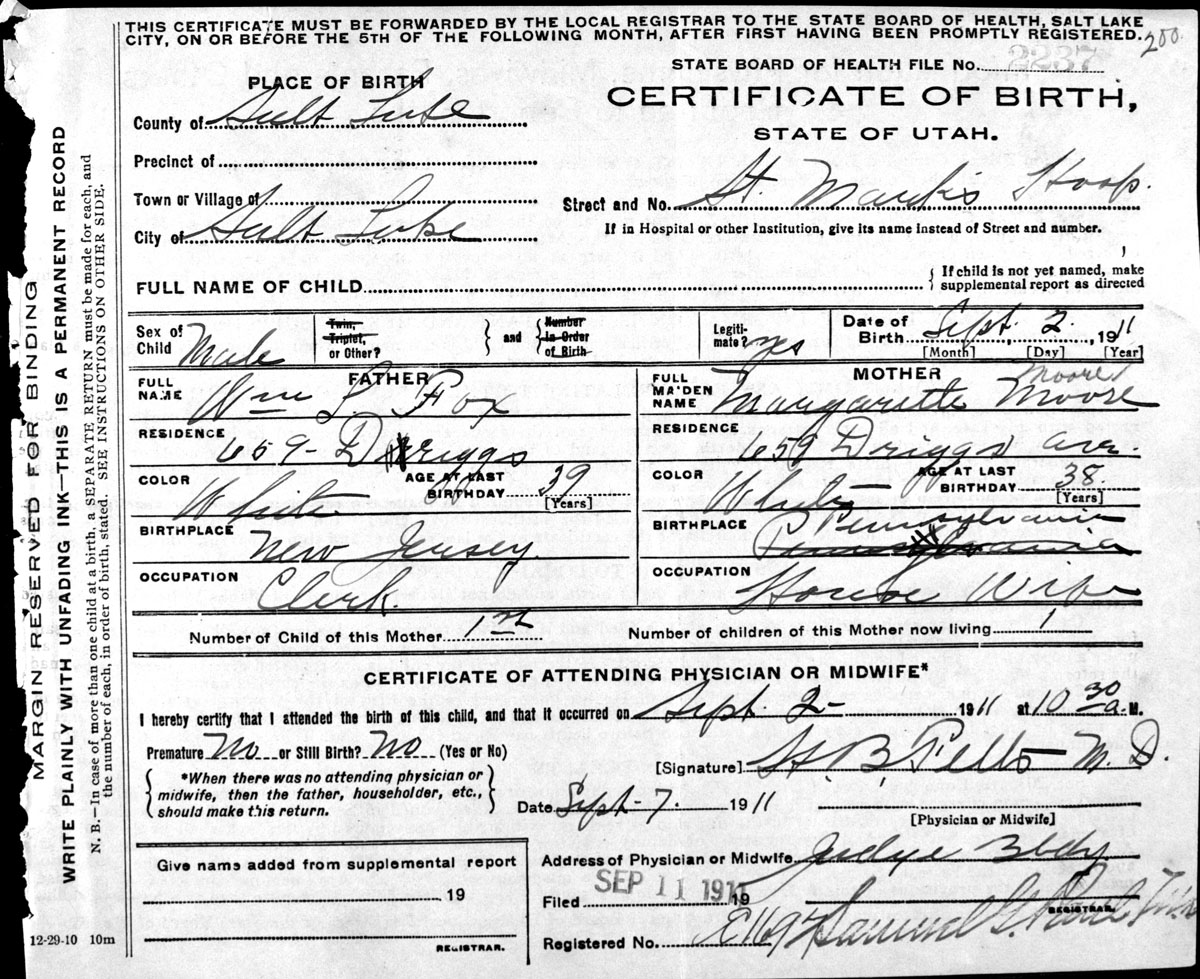 THIS CERTIFICATE MUST BE FORWARDED BY THE LOCAL REGISTRAR TO THE STATE BOARD OF HEALTH, SALT LAKE
CITY, ON OR BEFORE THE 5TH OF THE FOLLOWING MONTH, AFTER FIRST HAVING BEEN PROMPTLY REGISTERED.
200
STATE BOARD OF HEALTH FILE No. 2237
CERTIFICATE OF BIRTH,
STATE OF UTAH.
PLACE OF BIRTH
County of Salt Lake
Precinct of
Town or Village of
City of Salt Lake
Street and No. St. Mark's Hosp.
If in Hospital or other Institution, give its name instead of Street and number.
FULL NAME OF CHILD
{ If child is not yet named, make
supplemental report as directed
Sex of Child Male
Twin, Triplet, or Other? } and { Number in Order of Birth
Legitimate? yes
Date of Birth Sept. 2. 1911
[Month] [Day] [Year]
FATHER
FULL NAME Wm L. Fox
RESIDENCE 659- Driggs
COLOR White AGE AT LAST BIRTHDAY 39 [Years]
BIRTHPLACE New Jersey.
OCCUPATION Clerk.
MOTHER
Moore
FULL MAIDEN NAME Margarette Moore
RESIDENCE 659 Driggs ave.
COLOR White AGE AT LAST BIRTHDAY 38. [Years]
BIRTHPLACE Pennsylvania
OCCUPATION House Wife
Number of Child of this Mother 1st
Number of children of this Mother now living 1
CERTIFICATE OF ATTENDING PHYSICIAN OR MIDWIFE*
I hereby certify that I attended the birth of this child, and that it occurred on Sept. 2- 1911 at 10 30 a. M.
Premature No or Still Birth? No (Yes or No)
{ *When there was no attending physician or
midwife, then the father, householder, etc.,
should make this return. }
[Signature] M.D.
Date Sept-7. 1911
[Physician or Midwife]
Give name added from supplemental report
19
REGISTRAR.
Address of Physician or Midwife Judge Bldg
Filed SEP 11 1911 19
REGISTRAR.
Registered No. Samuel G.
12-29-10 10m
MARGIN RESERVED FOR BINDING
WRITE PLAINLY WITH UNFADING INK—THIS IS A PERMANENT RECORD
N. B.—In case of more than one child at a birth, a SEPARATE RETURN must be made for each, and
the number of each, in order of birth, stated. SEE INSTRUCTIONS ON OTHER SIDE.